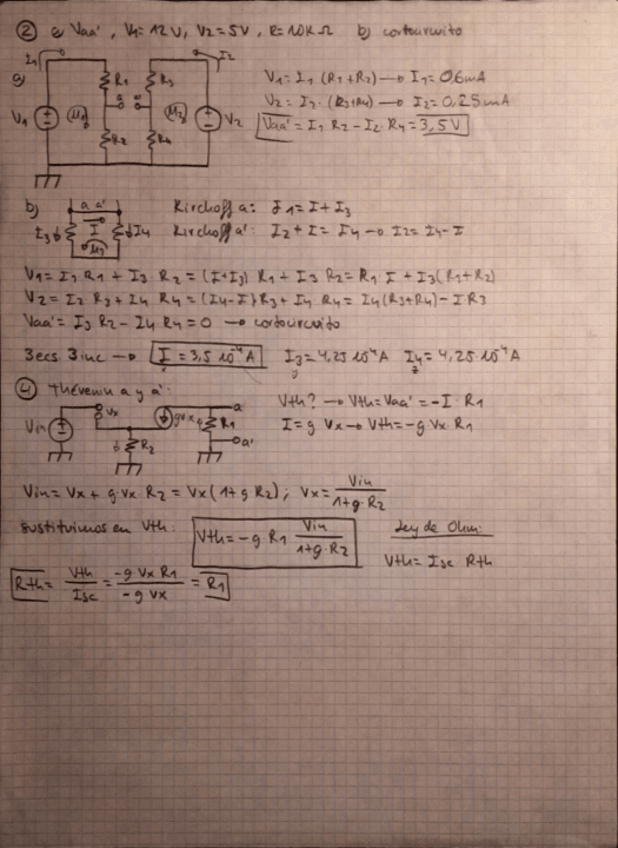 ② a) Vaa', V1 = 12V, V2 = 5V, R = 10KΩ b) cortocircuito
I1 I2
a)
R1 R3
V1 a a' V2
R2 R4
V1 = I1 (R1+R2) → I1 = 0,6mA
V2 = I2 · (R3+R4) → I2 = 0,25mA
Vaa' = I1 R2 - I2 R4 = 3,5V
b) a a'
I3 I I4
Kirchoff a: I1 = I + I3
Kirchoff a': I2 + I = I4 → I2 = I4 - I
V1 = I1 · R1 + I3 · R2 = (I+I3) R1 + I3 R2 = R1 · I + I3 (R1+R2)
V2 = I2 R3 + I4 R4 = (I4-I) R3 + I4 R4 = I4 (R3+R4) - I R3
Vaa' = I3 R2 - I4 R4 = 0 → cortocircuito
3ecs 3inc → I = 3,5 10⁻⁴A I3 = 4,25 10⁻⁴A I4 = 4,25·10⁻⁴A
④ Thévenin a y a':
Vin Vx gVx R1 a
R2 a'
Vth? → Vth = Vaa' = -I · R1
I = g Vx → Vth = -g Vx · R1
Vin = Vx + g · Vx · R2 = Vx (1+g R2); Vx = Vin / 1+g·R2
sustituimos en Vth: Vth = -g R1 Vin / 1+g·R2
Ley de Ohm:
Vth = Isc Rth
Rth = Vth / Isc = -g Vx R1 / -g Vx = R1